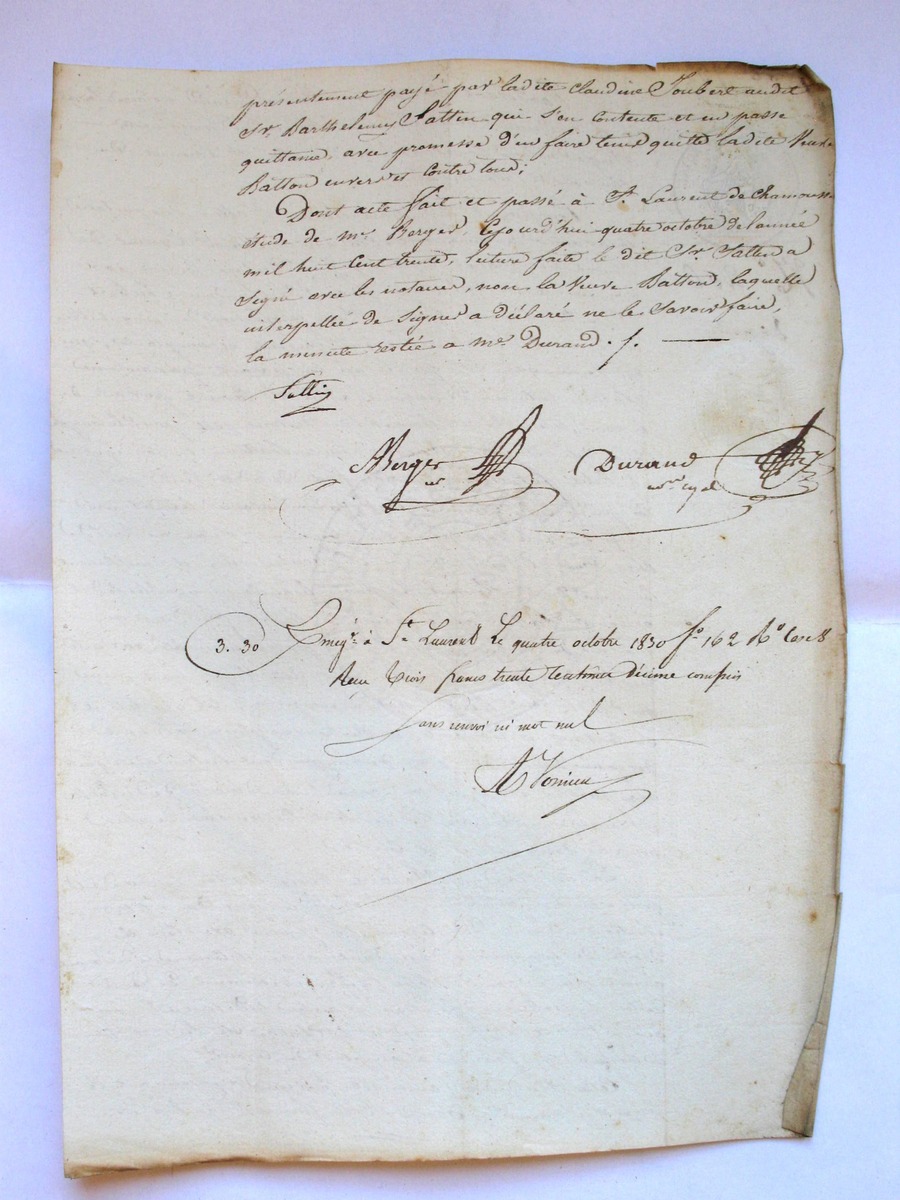 présentement payé par ladite Claudine Joubert audit
Sr. Barthelemy Sattin qui s'en contente et en passe
quittance, avec promesse d'en faire tenir quitte ladite Veuve
Batton envers et contre tous;
Dont acte fait et passé à St. Laurent de Chamousset
étude de me. Berger, cejourd'hui quatre octobre de l'année
mil huit cent trente, lecture faite le dit Sr. Sattin a
signé avec les notaires, non la Veuve Batton, laquelle
interpellée de signer a déclaré ne le savoir faire,
la minute restée a me. Durand . / . —
Sattin
Berger
nre
Durand
nre royal
3. 30 Enregr. à St. Laurent Le quatre octobre 1830 fo 162 Ro Case 8
Reçu trois francs trente centimes décime compris
Sans renvoi ni mot nul